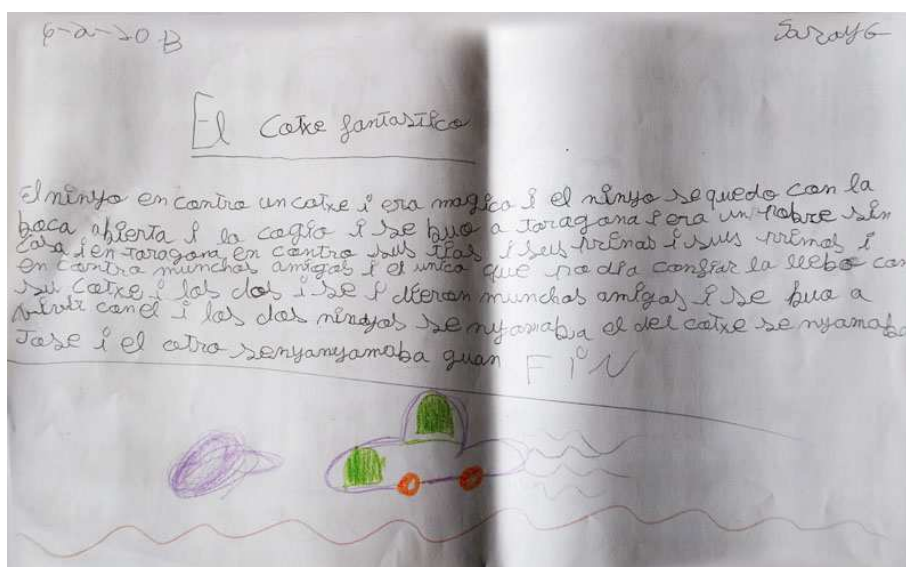 6-a-20 B
Saray G
El cotxe fantastico
El ninyo en contro un cotxe i era magico i el ninyo se quedo con la
boca abierta i la cogio i se buo a taragona i era un pobre sin
casa i en taragona en contro sus tias i seus primas i suis primos i
en contro munchos amigos i el unico que podia confiar la llebo con
su cotxe i los dos i se i dieron munchos amigos i se buo a
vivir con el i los dos ninyos se nyamaba el del cotxe se nyamaba
Jose i el otro senyanyamaba guan FiN